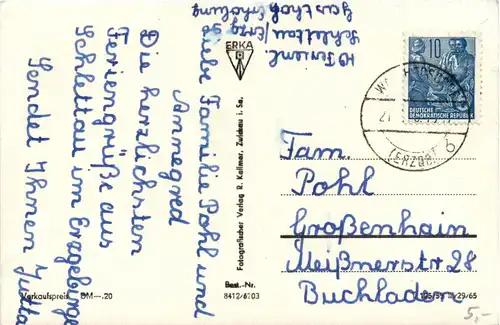 z. Zt. Ferienl.
Schlettau / Erzg.
Gasthof Erholung
Liebe Familie Pohl und
Annegred
Die herzlichsten
Feriengrüße aus
Schlettau im Erzgebirge
Sendet Ihnen Jutta
ERKA
Fotografischer Verlag R. Kallmer, Zwickau i. Sa.
Best.-Nr.
8412/6103
Verkaufspreis DM -.20
10
DEUTSCHE
DEMOKRATISCHE REPUBLIK
(ERZGEB)
6
Fam.
Pohl
Großenhain
Meißnerstr 28
Buchladen
5,-